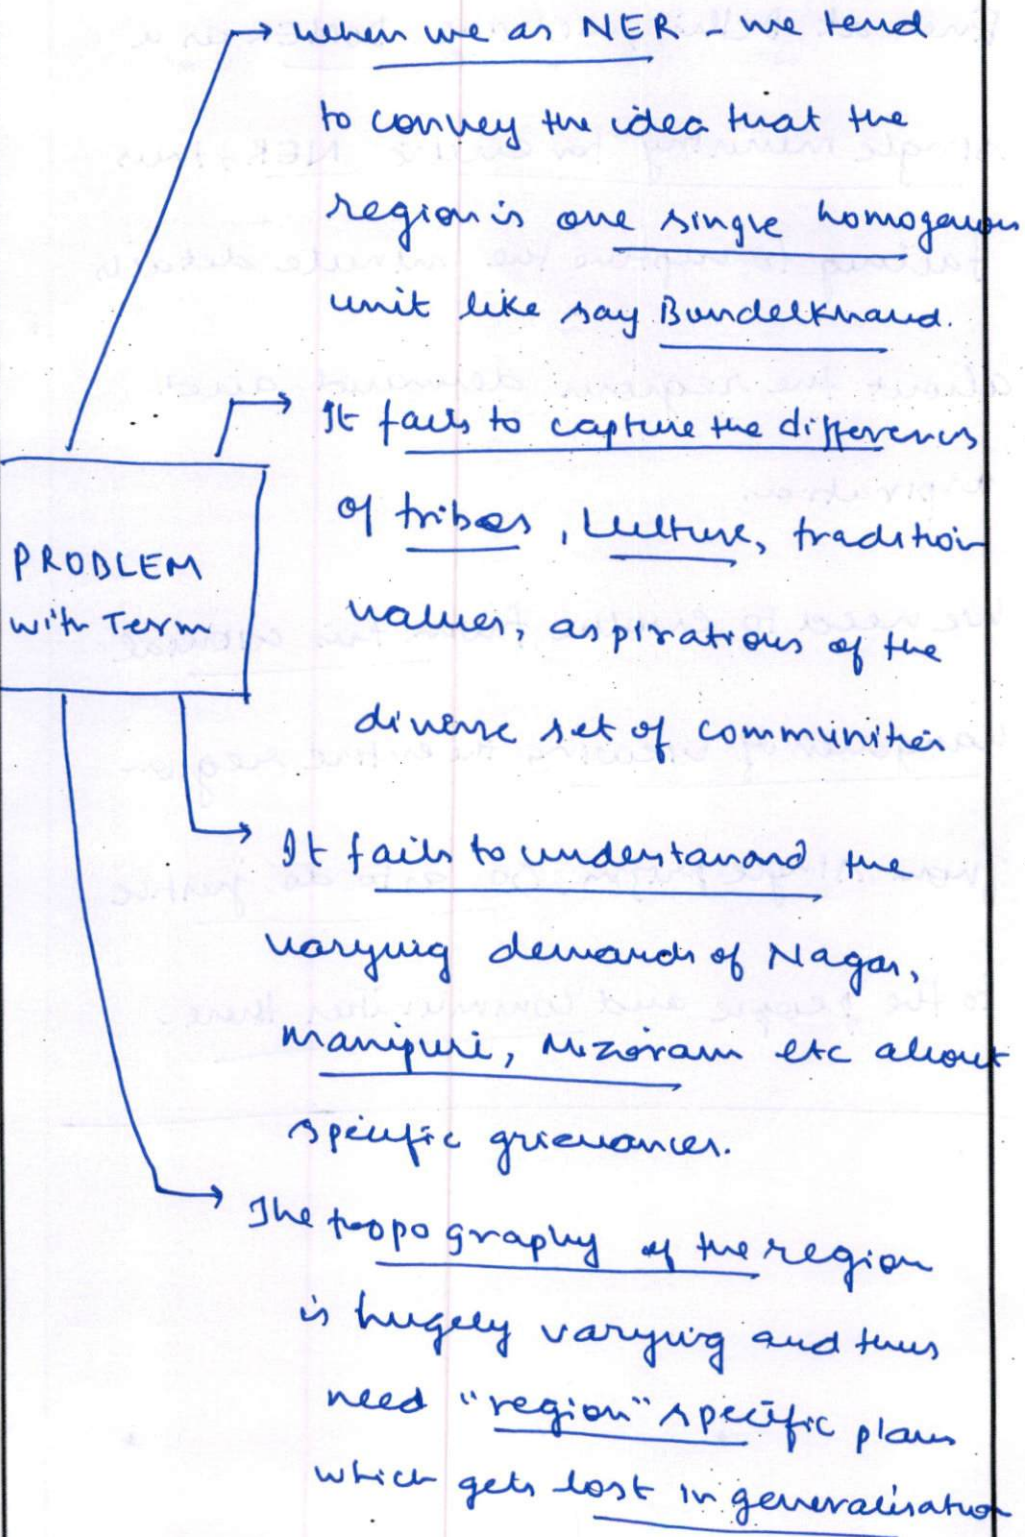 when we as NER - we tend
to convey the idea that the
region is one single homogenous
unit like say Bundelkhand.
It fails to capture the differences
of tribes, culture, tradition
values, aspirations of the
diverse set of communities
PROBLEM
with Term
It fails to understanand the
varying demands of Nagas,
manipuri, Mizoram etc about
specific grievances.
The topography of the region
is hugely varying and thus
need "region" specific plans
which gets lost in generalisation